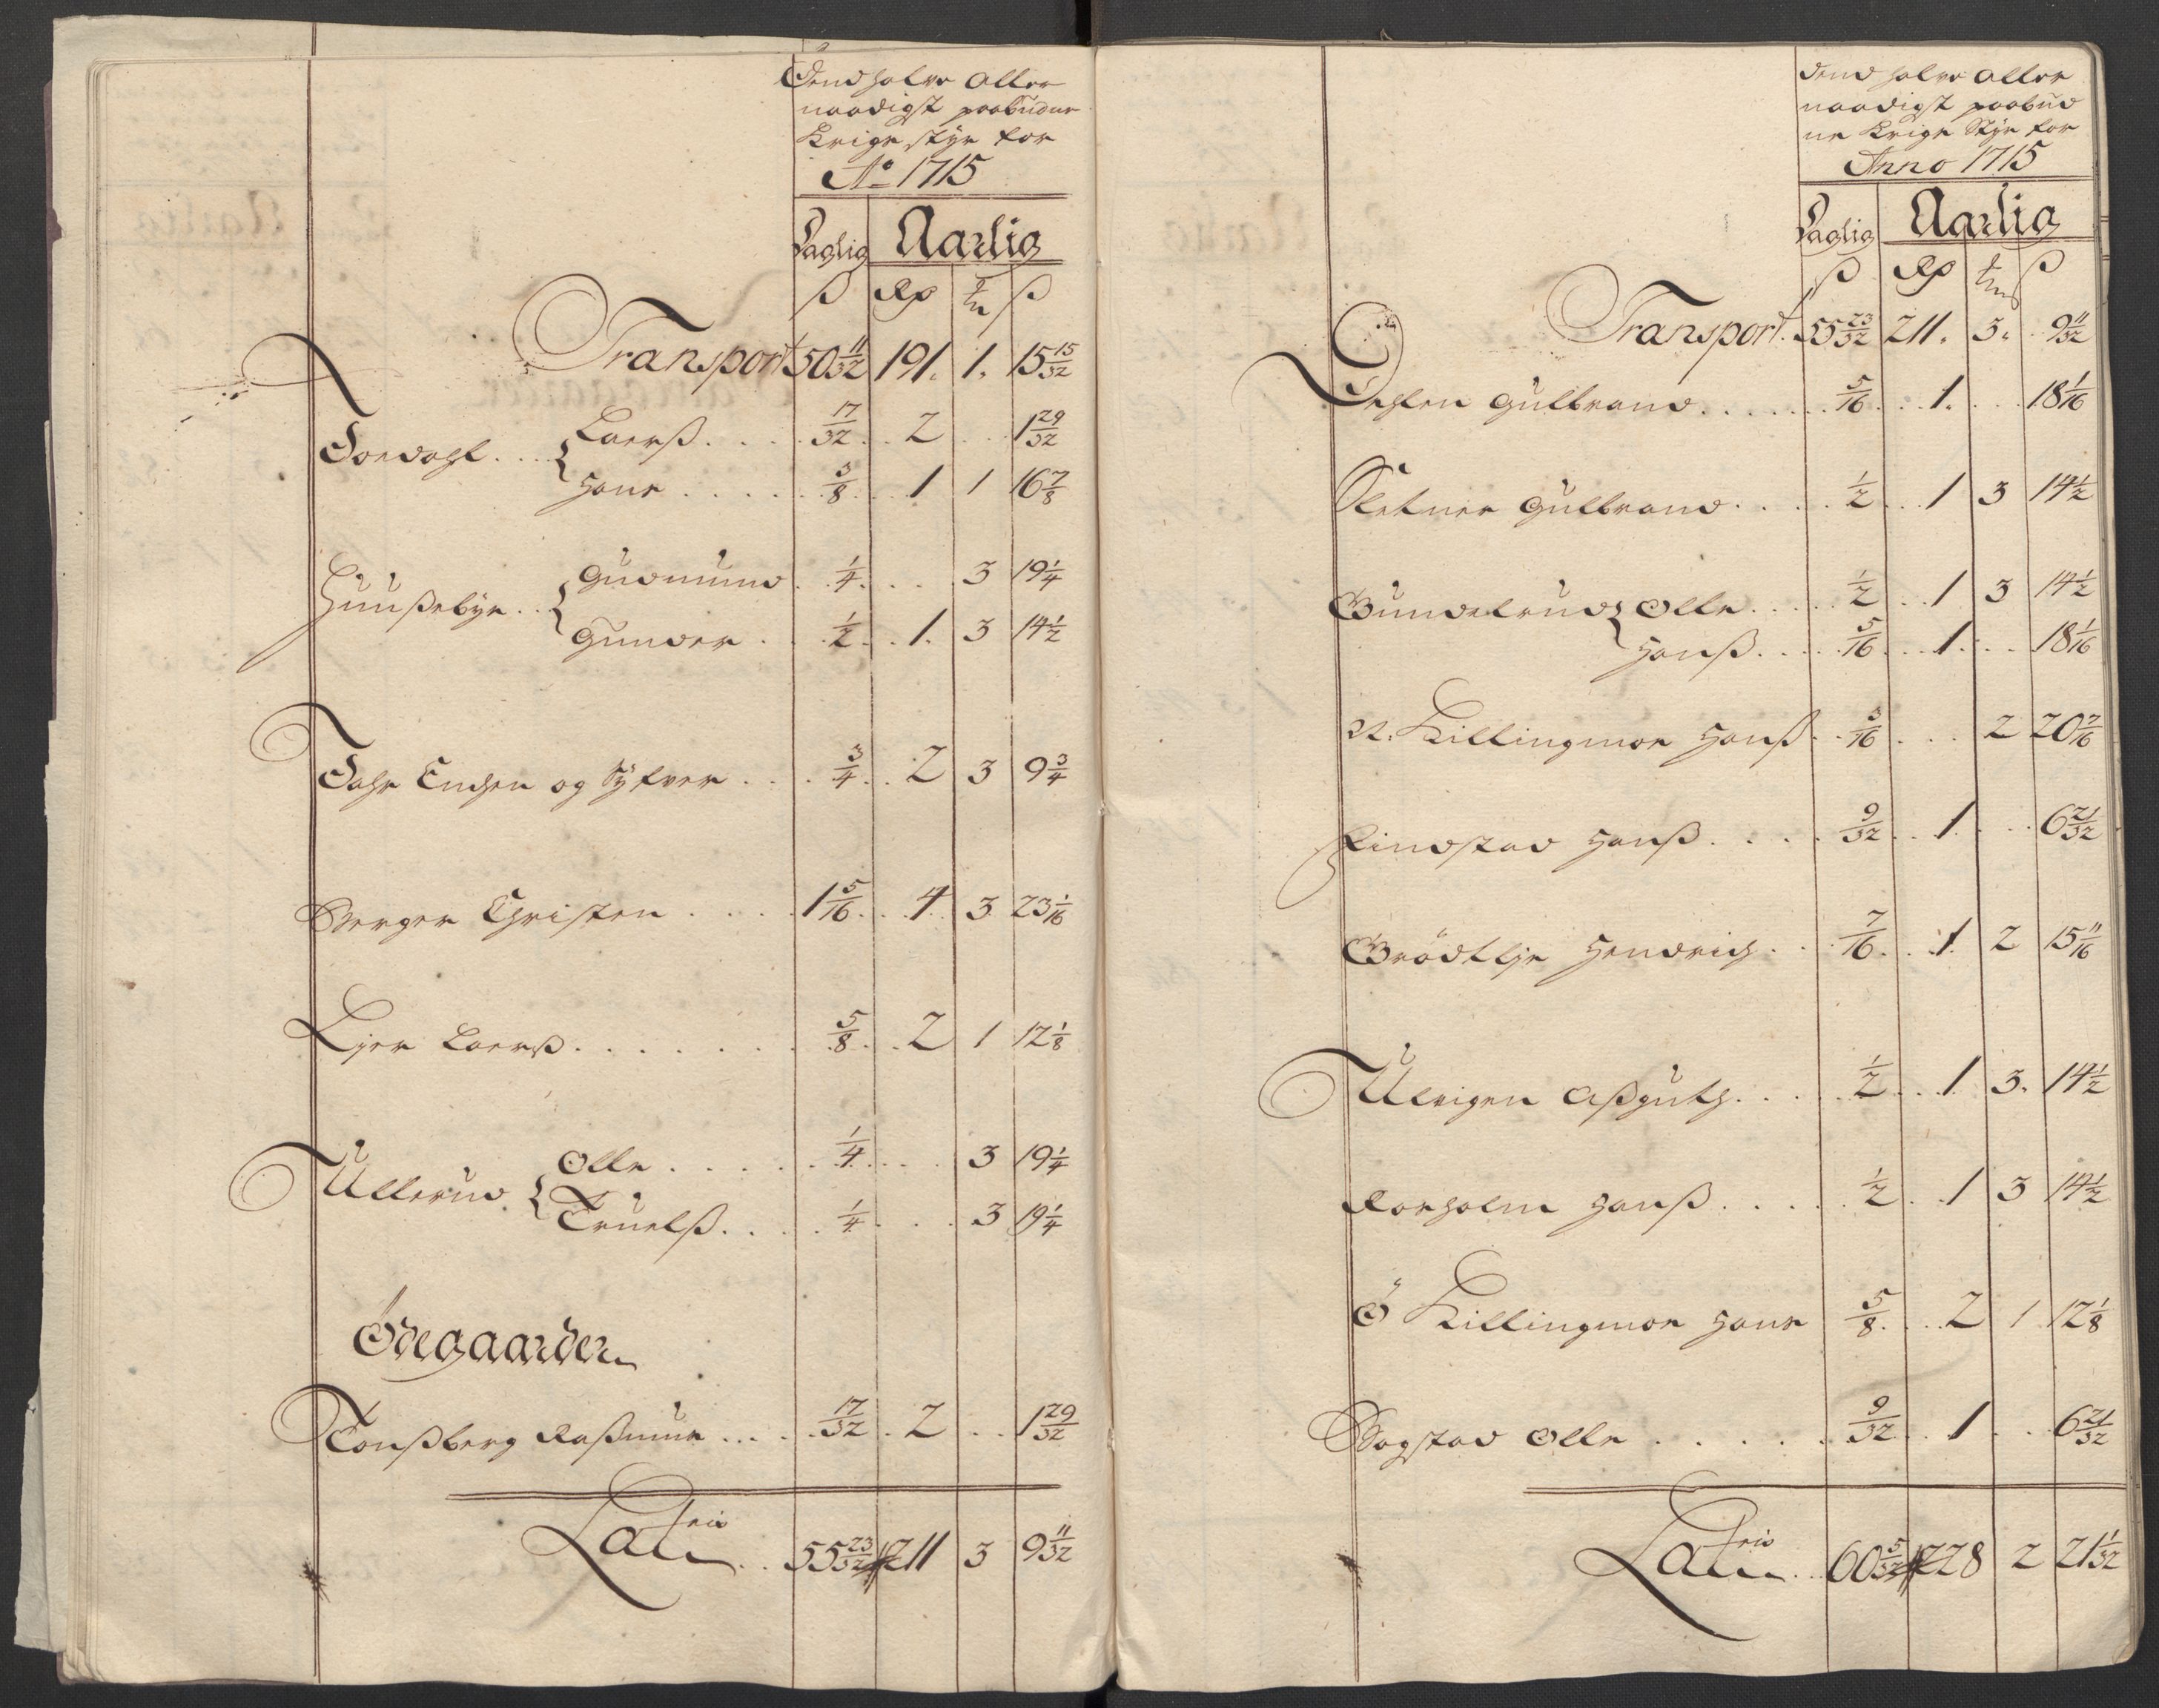 Dend halve Aller
naadigst paabudne
Krigs styr for
Ao 1715
Daglig Aarlig
ß Rp ß
Transport 50 11/32 191. 1. 15 15/32
Laerß . . . 17/32 . . 2 . . 1 29/32
Hans . . . . . 3/8 . . . 1 1 16 7/8
Gudmund . . 1/4 . . . . 3 19 1/4
Huußebye . .
Gunder . . . 1/2 . . 1. 3 14 1/2
og Sÿfver . . . 3/4 . . 2 3 9 3/4
Berger Christen . . . . 1 5/16 . . 4 . 3 23 1/16
Lyer Laerß . . . . . . . 5/8 . . 2 1 12 1/8
Olle . . . . . 1/4 . . . . 3 19 1/4
Ullerud
Truelß . . . . 1/4 . . . 3 19 1/4
Ödegaarder
Tonßberg Raßmus . . . . 17/32 . 2 . . 1 29/32
Lateris . . 55 23/32 211 3 9 11/32
Dend halve Aller
naadigst paabud
ne Krigs Styr for
Anno 1715
Daglig Aarlig
ß Rp ß
Transport. 55 23/32 211. 3. 9 11/32
Gulbrand . . . . . . 5/16 . . 1. . . 18 1/16
Sletner Gulbrand . . . . 1/2 . . 1 3 14 1/2
Gundelrud Olle . . . . 1/2 . . 1 3 14 1/2
Hanß . . . . 5/16 . . 1 . . . 18 1/16
N. Killingmoe Hanß . . 3/16 . . . 2 20 7/16
Findstad Hanß . . . . 9/32 . . 1 . . . 6 21/32
Grödtlje Hendrich . . . 7/16 . . 1. 2 15 11/16
Ulrigen Aßgutz . . . . . 1/2 . . 1 3. 14 1/2
Rorholm Hanß . . . . . 1/2 . . 1 3 14 1/2
Ö Killingmoe Hans 5/8 . . . 2 1 12 1/8
Bogstad Olle . . . . . . 9/32 . . 1 . . 6 21/32
Lateris . . 60 5/32 228 2 21 1/32